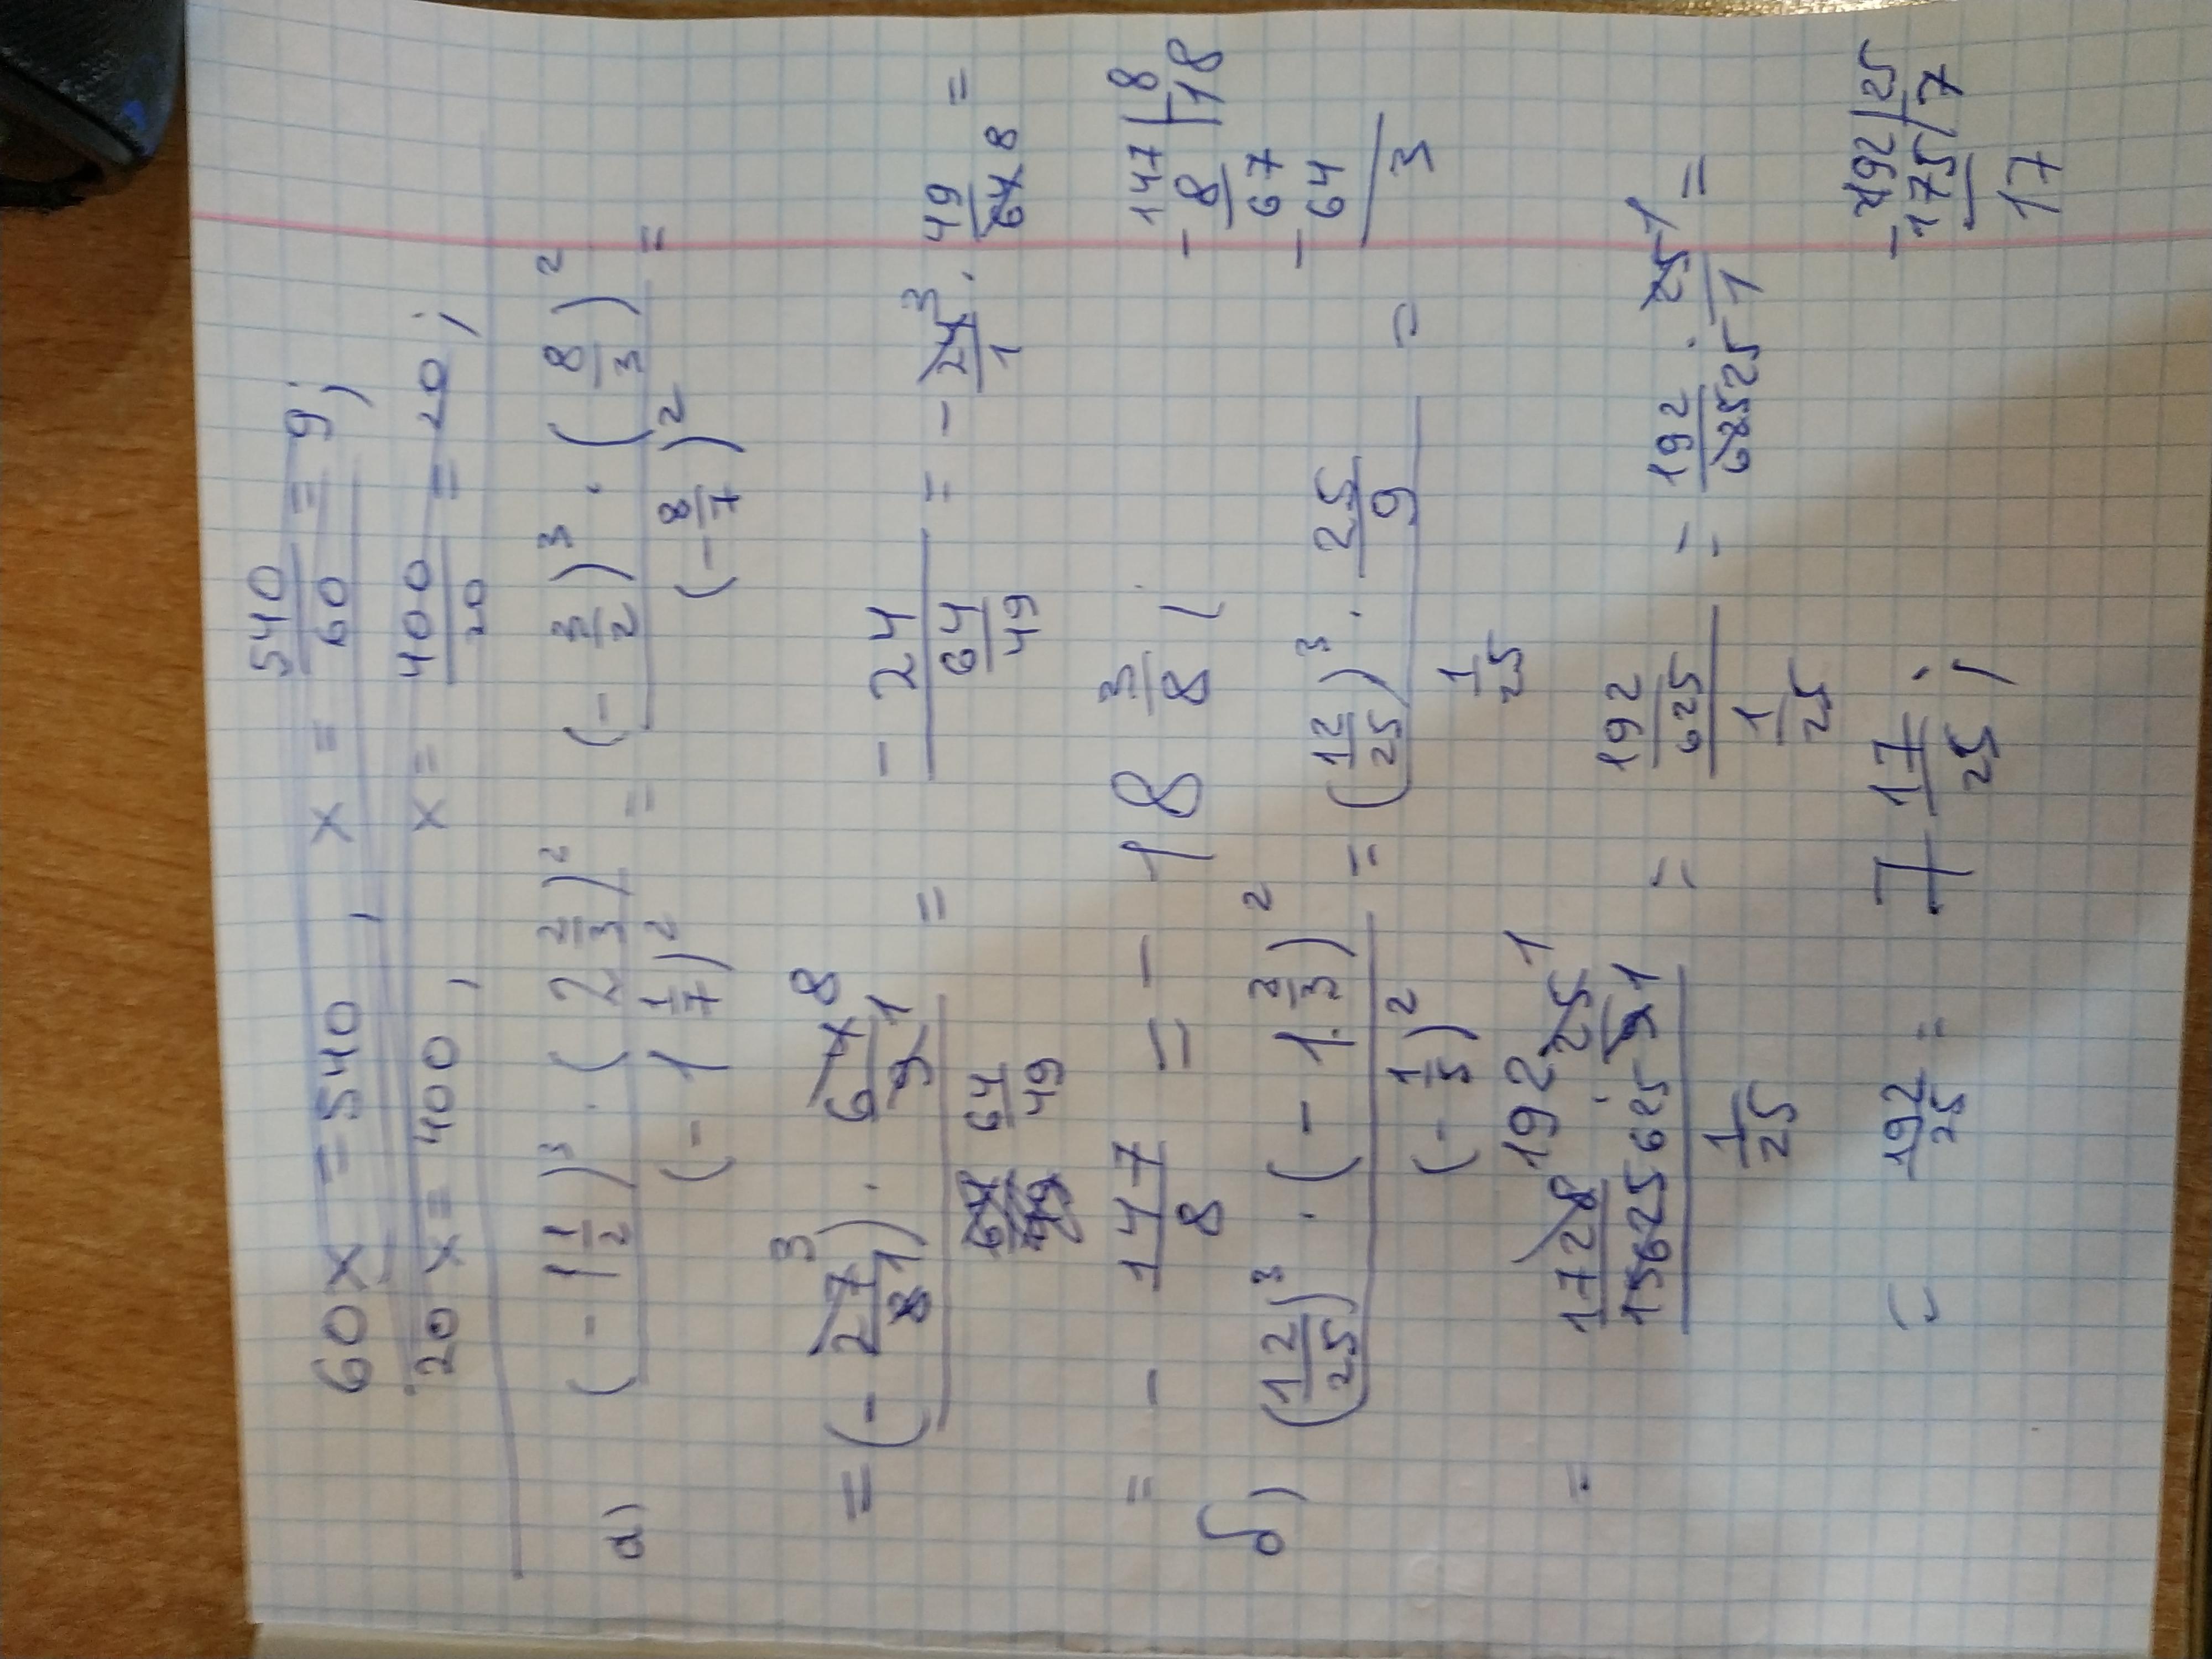 60x = 540, x = 540/60 = 9;
20x = 400, x = 400/20 = 20;
а) (-1 1/2)³ · (2 2/3)² / (-1 1/7)² = (-3/2)³ · (8/3)² / (-8/7)² =
= (-27/8) · 64/9 / 64/49 = -24 / 64/49 = -24/1 · 49/64 =
3 1 8 1 3 8
= -147/8 = -18 3/8;
147 | 8
- 8 | 18
67
- 64
3
б) (12/25)³ · (-1 2/3)² / (-1/5)² = (12/25)³ · 25/9 / 1/25 =
= 1728/15625 · 25/9 / 1/25 = 192/625 / 1/25 = 192/625 · 25/1 =
192 625 1 1 25 1
= 192/25 = 7 17/25;
- 192 | 25
175 | 7
17